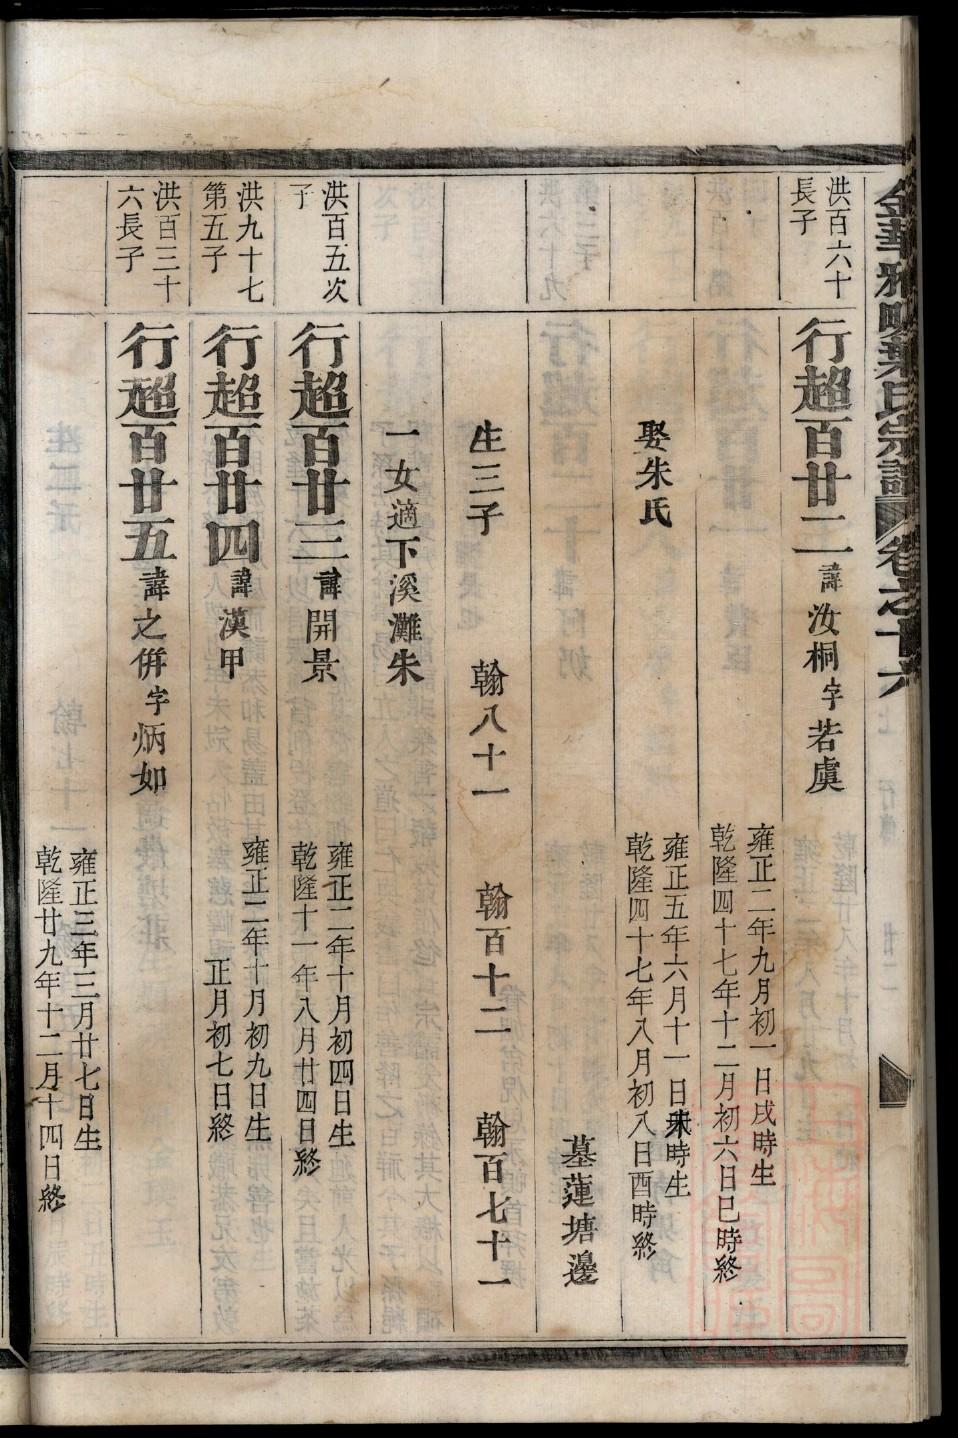 金華雅畈葉氏宗譜 卷之十六
洪百六十
長子
行超百廿二 諱汝桐 字若虞
雍正二年九月初一日戌時生
乾隆四十七年十二月初六日巳時終
娶朱氏
雍正五年六月十一日未時生
乾隆四十七年八月初八日酉時終
墓蓮塘邊
生三子 翰八十一 翰百十二 翰百七十一
一女適下溪灘朱
洪百五次
子
行超百廿三 諱開景
雍正二年十月初四日生
乾隆十一年八月廿四日終
洪九十七
第五子
行超百廿四 諱漢甲
雍正二年十月初九日生
正月初七日終
洪百三十
六長子
行超百廿五 諱之倂 字炳如
雍正三年三月廿七日生
乾隆廿九年十二月十四日終